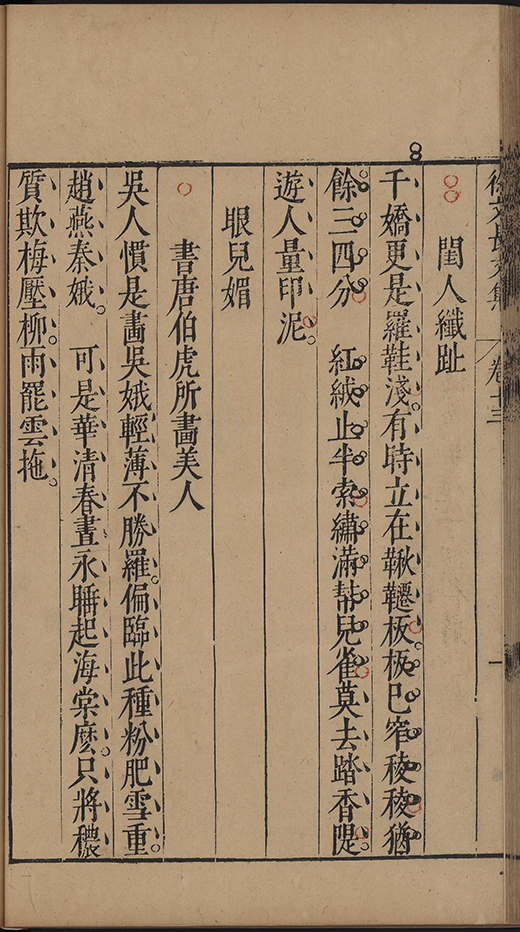 徐文長文集 卷十三 一
閨人纖趾
千嬌更是羅鞋淺有時立在鞦韆板板已窄稜稜猶
餘三四分 紅絨止半索繡滿幫兒雀莫去踏香隄
遊人量印泥
眼兒媚
書唐伯虎所畫美人
吳人慣是畫吳娥輕薄不勝羅偏臨此種粉肥雪重
趙燕秦娥 可是華清春晝永睡起海棠麽只將穠
質欺梅壓柳雨罷雲拖